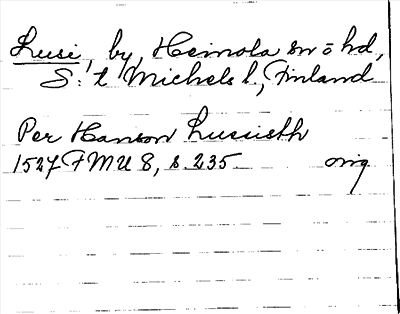 Lusi, by, Heinola sn o hd,
S:t Michels l., Finland
Per Hanson Lussisth
1527 FMU 8, s. 235. orig